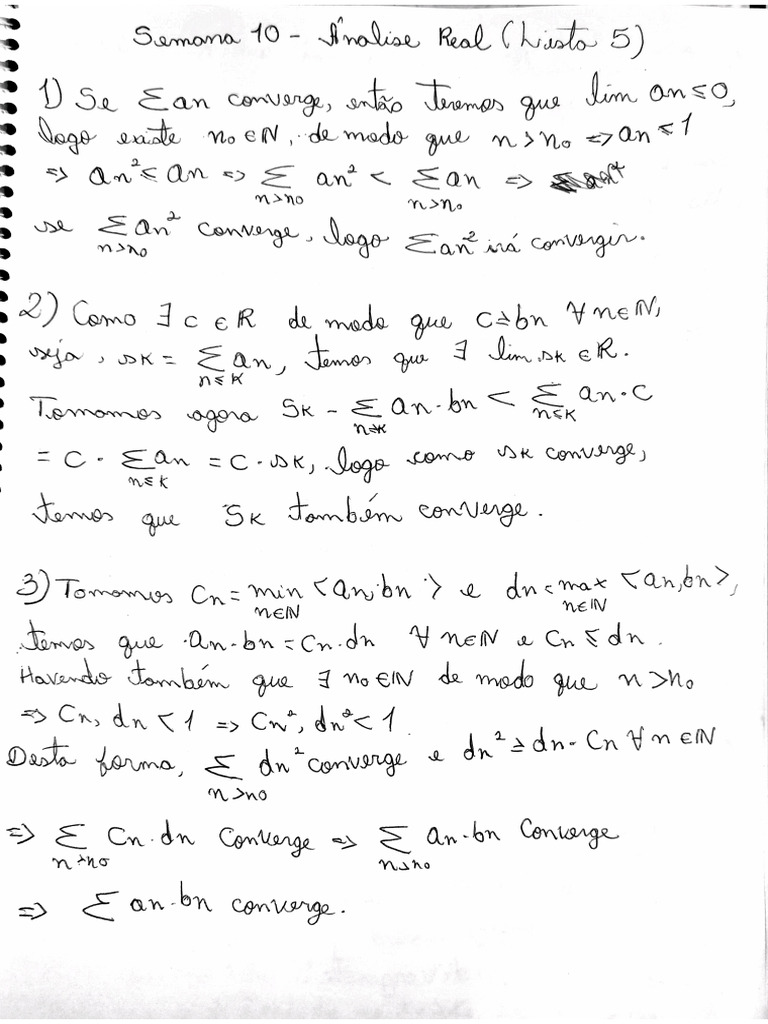 Semana 10 - Análise Real (Lista 5)
1) Se Σan converge, então teremos que lim an ≤ 0,
logo existe n₀ ∈ ℕ, de modo que n > n₀ => an < 1
=> an² < an => Σ an² < Σ an =>
n>n₀ n>n₀
se Σ an² converge, logo Σan² irá convergir.
n>n₀
2) Como ∃ c ∈ ℝ de modo que c ≥ bn ∀ n ∈ ℕ,
seja, sk = Σ an, temos que ∃ lim sk ∈ ℝ.
n≤k
Tomamos agora Sk - Σ an·bn < Σ an·c
n≤k n≤k
= c · Σ an = c · sk, logo como sk converge,
n≤k
temos que Sk também converge.
3) Tomamos Cn = min <an, bn> e dn = max <an, bn>,
n∈ℕ n∈ℕ
temos que an·bn = Cn·dn ∀ n ∈ ℕ e Cn ≤ dn.
Havendo também que ∃ n₀ ∈ ℕ de modo que n > n₀
=> Cn, dn < 1 => Cn², dn² < 1.
Desta forma, Σ dn² converge e dn² ≥ dn · Cn ∀ n ∈ ℕ
n>n₀
=> Σ Cn·dn Converge => Σ an·bn Converge
n>n₀ n>n₀
=> Σ an·bn converge.